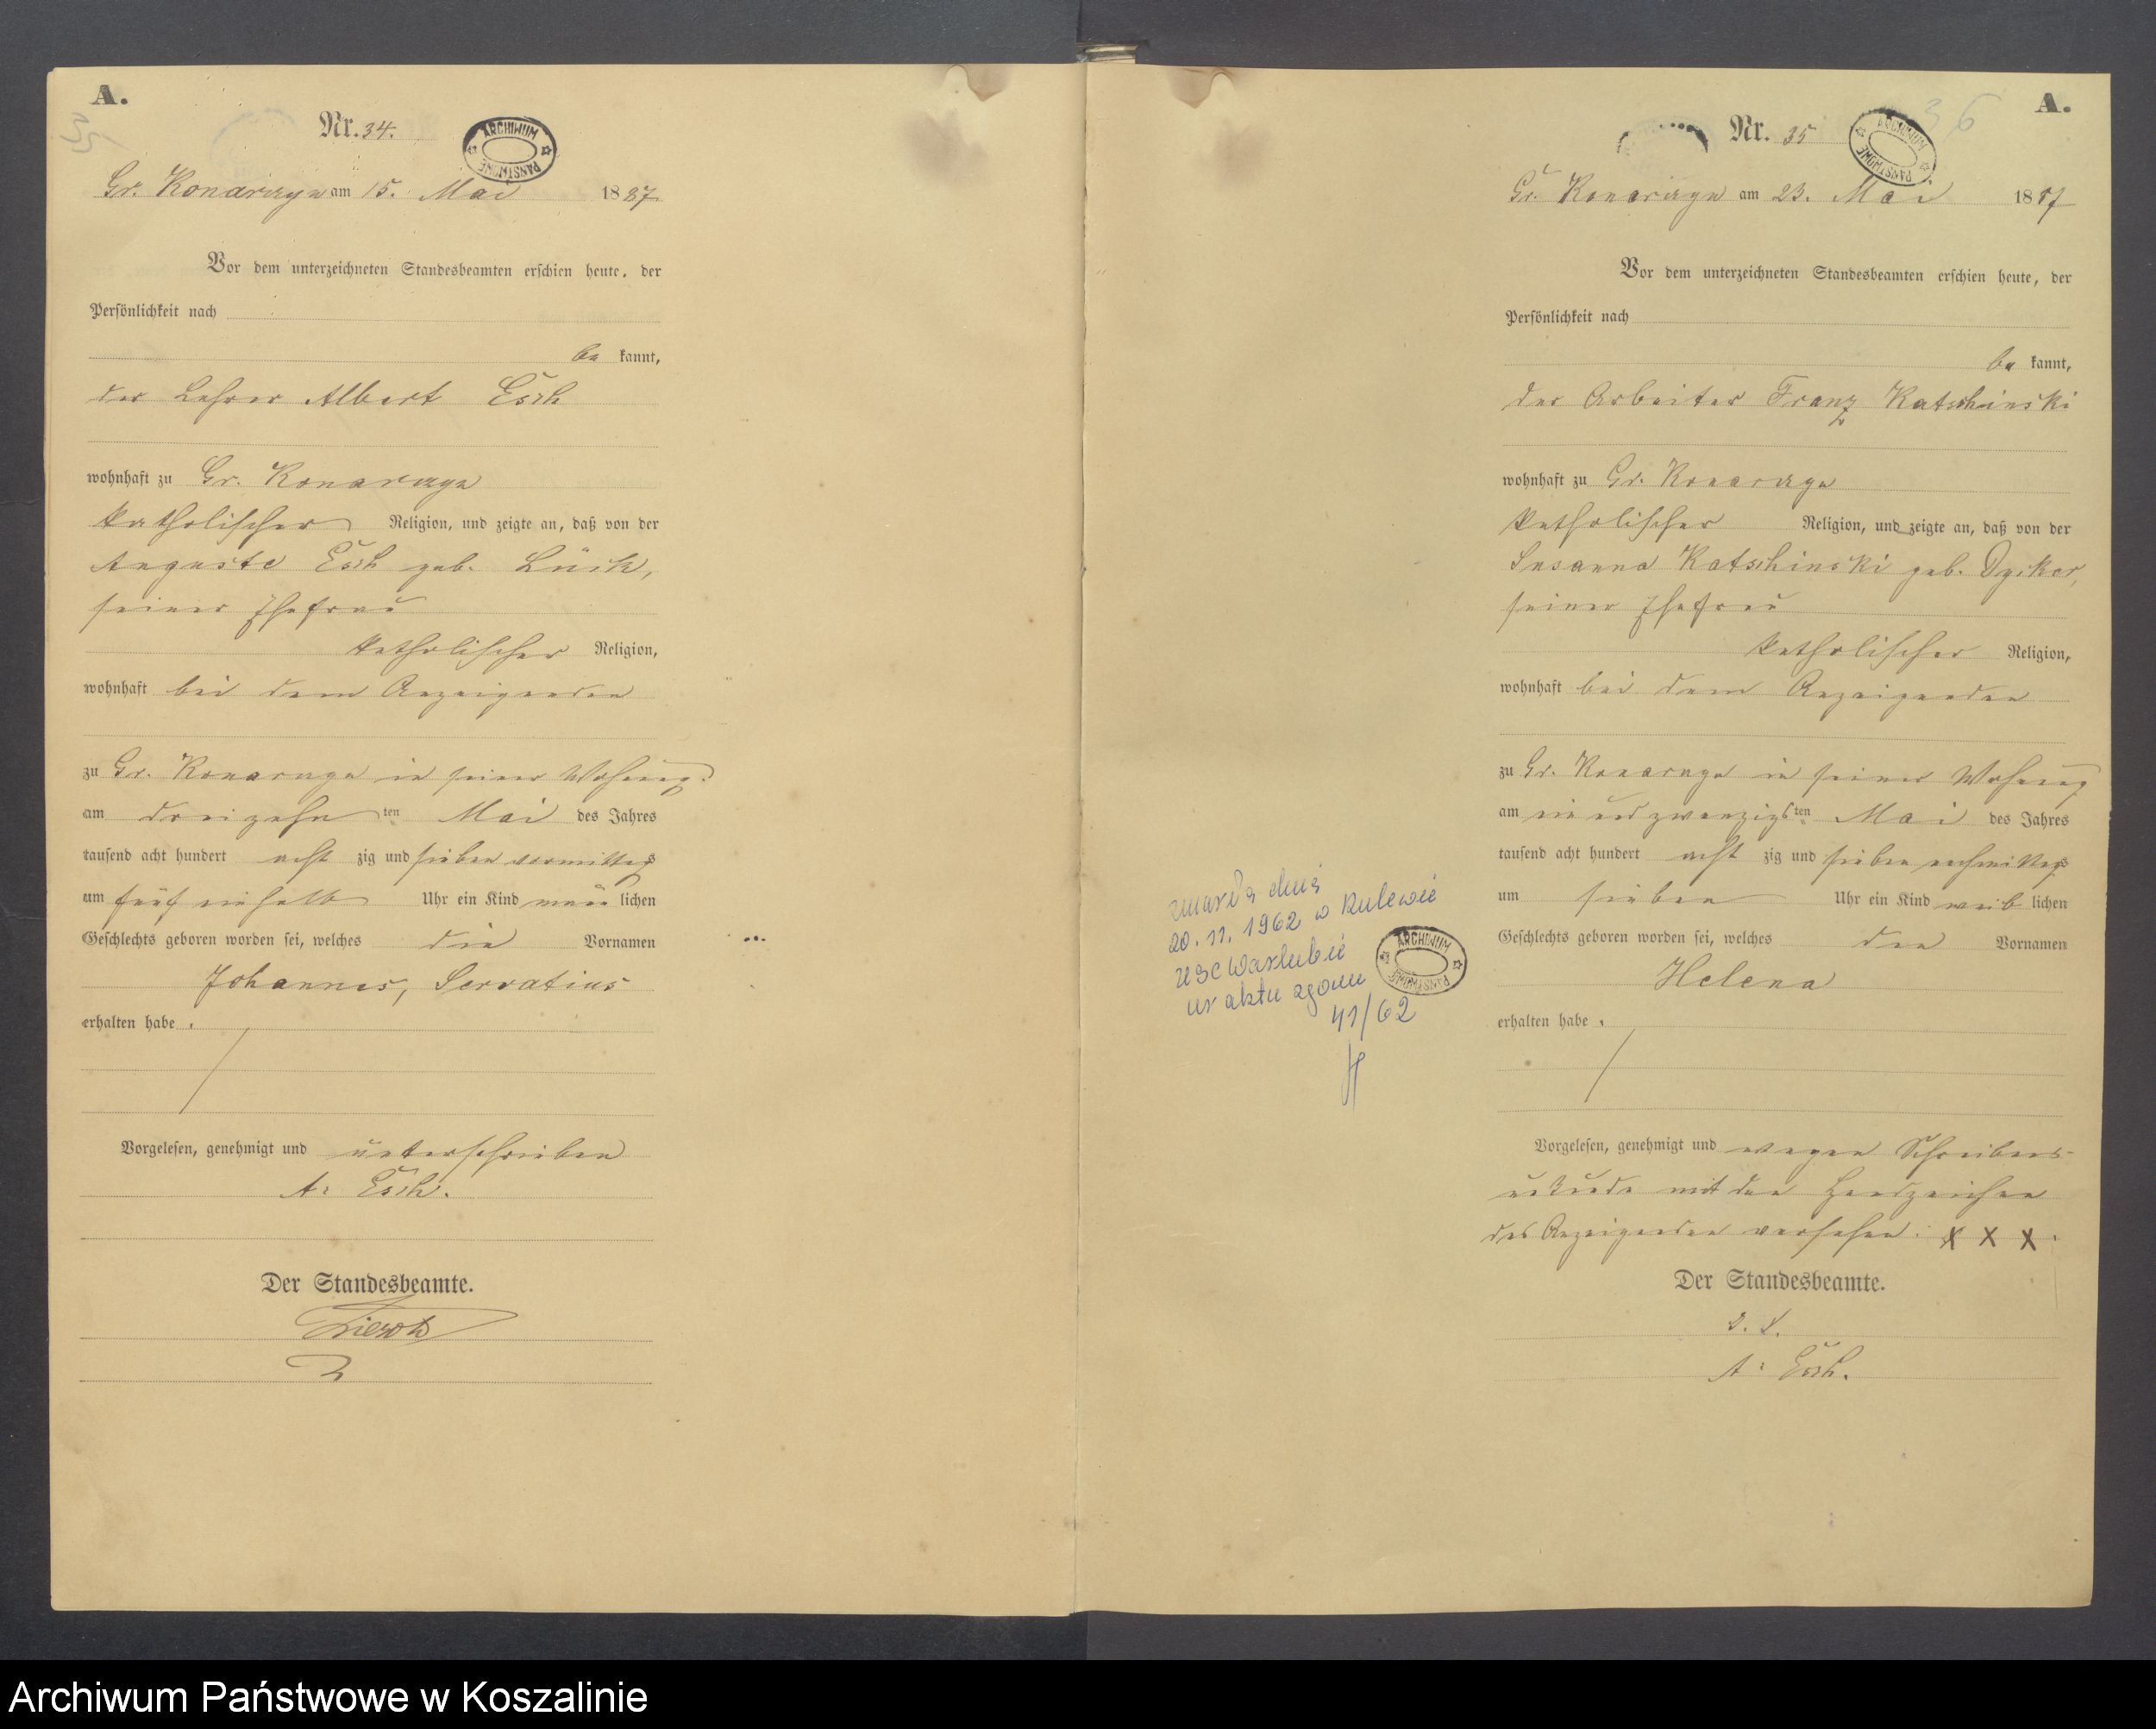 A.
35
Nr. 34.
ARCHIWUM PAŃSTWOWE
Gr. Konarczyn am 15. Mai 1887.
Vor dem unterzeichneten Standesbeamten erschien heute, der
Persönlichkeit nach
be kannt,
der Lehrer Albert Esch
wohnhaft zu Gr. Konarczyn
katholischer Religion, und zeigte an, daß von der
Auguste Esch geb. Lück,
seiner Ehefrau
katholischer Religion,
wohnhaft bei dem Anzeigenden
zu Gr. Konarczyn in seiner Wohnung
am dreizehn ten Mai des Jahres
tausend acht hundert acht zig und sieben vormittags
um fünf ein halb Uhr ein Kind männ lichen
Geschlechts geboren worden sei, welches die Vornamen
Johannes, Servatius
erhalten habe.
Vorgelesen, genehmigt und unterschrieben
A. Esch.
Der Standesbeamte.
A.
36
Nr. 35
ARCHIWUM PAŃSTWOWE
Gr. Konarczyn am 23. Mai 1887
Vor dem unterzeichneten Standesbeamten erschien heute, der
Persönlichkeit nach
be kannt,
der Arbeiter Franz Katschinski
wohnhaft zu Gr. Konarczyn
katholischer Religion, und zeigte an, daß von der
Susanna Katschinski geb. Dysker,
seiner Ehefrau
katholischer Religion,
wohnhaft bei dem Anzeigenden
zu Gr. Konarczyn in seiner Wohnung
am ein und zwanzigs ten Mai des Jahres
tausend acht hundert acht zig und sieben nachmittags
um sieben Uhr ein Kind weib lichen
Geschlechts geboren worden sei, welches den Vornamen
Helena
erhalten habe.
Vorgelesen, genehmigt und wegen Schreibens-
unkunde mit den Handzeichen
des Anzeigenden versehen. X X X.
Der Standesbeamte.
A. Esch.
zmarła dnia
20.11.1962 w Kulewie
USC Warlubie
nr aktu zgonu
41/62
ARCHIWUM PAŃSTWOWE
Archiwum Państwowe w Koszalinie